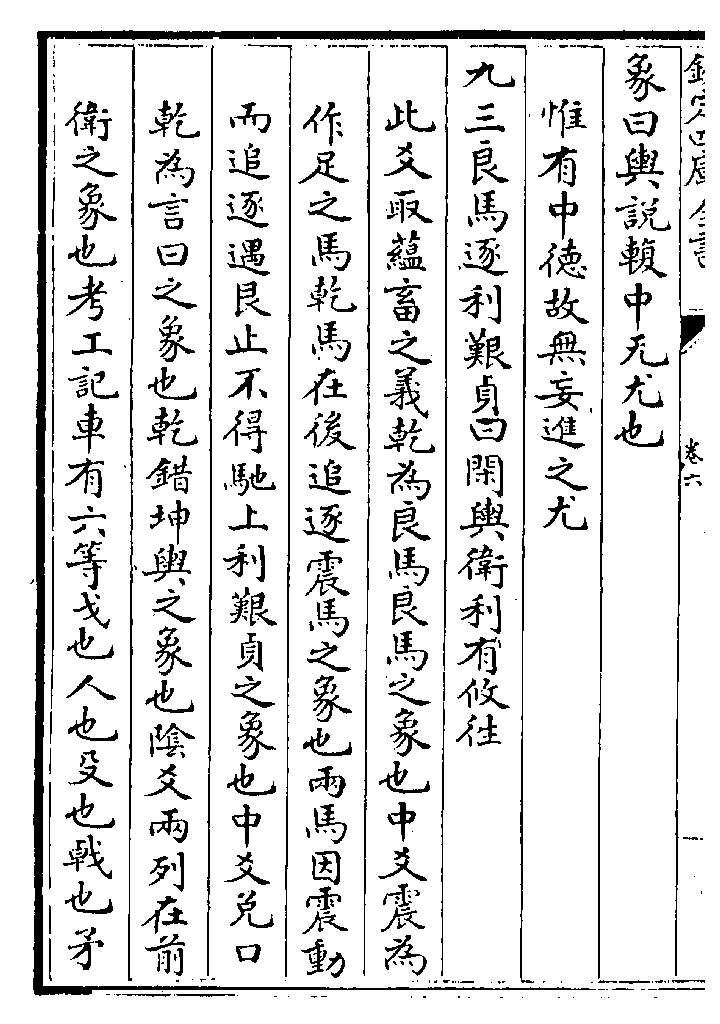 欽定四庫全書
卷六
象曰輿説輹中无尤也
惟有中徳故無妄進之尤
九三良馬逐利艱貞曰閑輿衛利有攸往
此爻取蘊畜之義乾為良馬良馬之象也中爻震為
作足之馬乾馬在後追逐震馬之象也兩馬因震動
而追逐遇艮止不得馳上利艱貞之象也中爻兌口
乾為言曰之象也乾錯坤輿之象也陰爻兩列在前
衛之象也考工記車有六等戈也人也殳也戟也矛